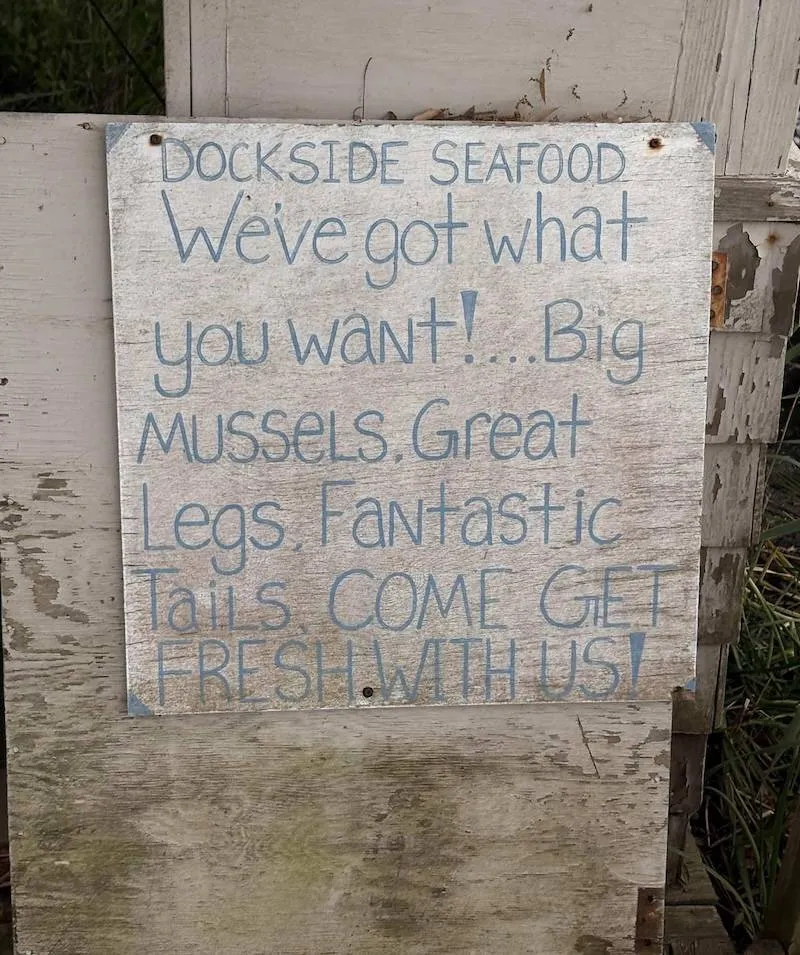 DOCKSIDE SEAFOOD
We've got what
you want!....Big
Mussels, Great
Legs, Fantastic
Tails, COME GET
FRESH WITH US!